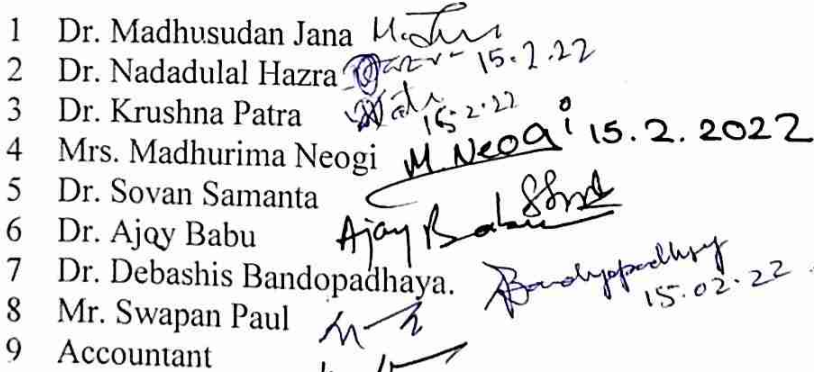 1 Dr. Madhusudan Jana
2 Dr. Nadadulal Hazra 15.2.22
3 Dr. Krushna Patra 15.2.22
4 Mrs. Madhurima Neogi M. Neogi 15.2.2022
5 Dr. Sovan Samanta
6 Dr. Ajoy Babu Ajay Babu
7 Dr. Debashis Bandopadhaya. Bandyopadhyay 15.02.22
8 Mr. Swapan Paul
9 Accountant